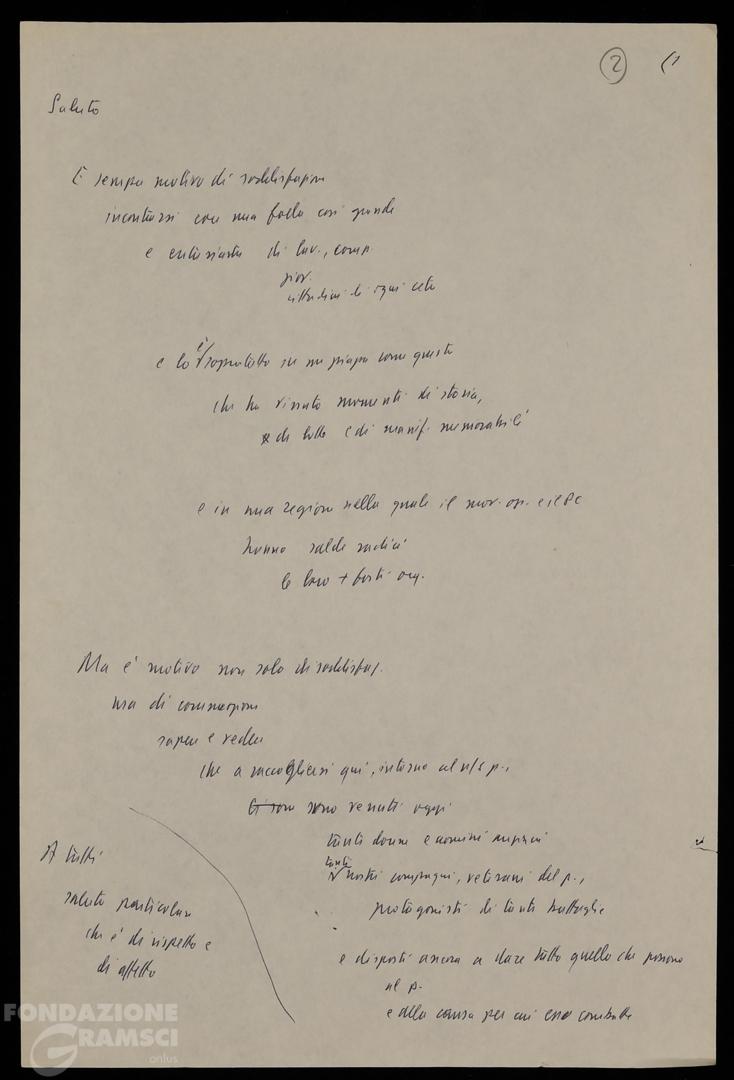 2 (1
Saluto
È sempre motivo di soddisfazione
incontrarsi con una folla così grande
e entusiasta di lav., comp.
giov.
cittadini di ogni ceto
e lo è soprattutto in una piazza come questa
che ha vissuto momenti di storia,
di lotte e di manif. memorabili
e in una regione nella quale il mov. op. e il PC
hanno salde radici
le loro + forti org.
Ma è motivo non solo di soddisfaz.
ma di commozione
sapere e vedere
che a raccogliersi qui, intorno al n/s p.,
Ci sono sono venuti oggi
tanti donne e uomini anziani
tanti nostri compagni, veterani del p.,
protagonisti di tante battaglie
e disposti ancora a dare tutto quello che possono
al p.
e alla causa per cui esso combatte
A tutti
saluto particolare
che è di rispetto e
di affetto
FONDAZIONE
GRAMSCI
onlus